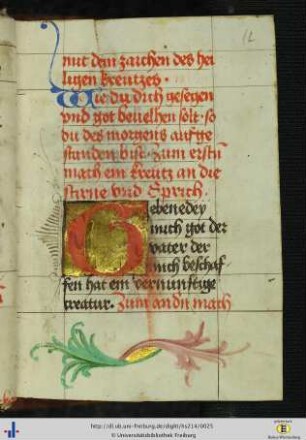 12
mit dem zaichen des hei
ligen kreutzes.
Wie du dich gesegen
vnd got bevelhen solt. so
du des morgens aufge
standen bist. Zum erstn
mach ein kreutz an die
stirne vnd Sprich.
Gebenedey
mich got der
vater der
mich beschaf
fen hat ein vernunftige
creatur. Zum andn mach
http://dl.ub.uni-freiburg.de/diglit/hs214/0025
© Universitätsbibliothek Freiburg